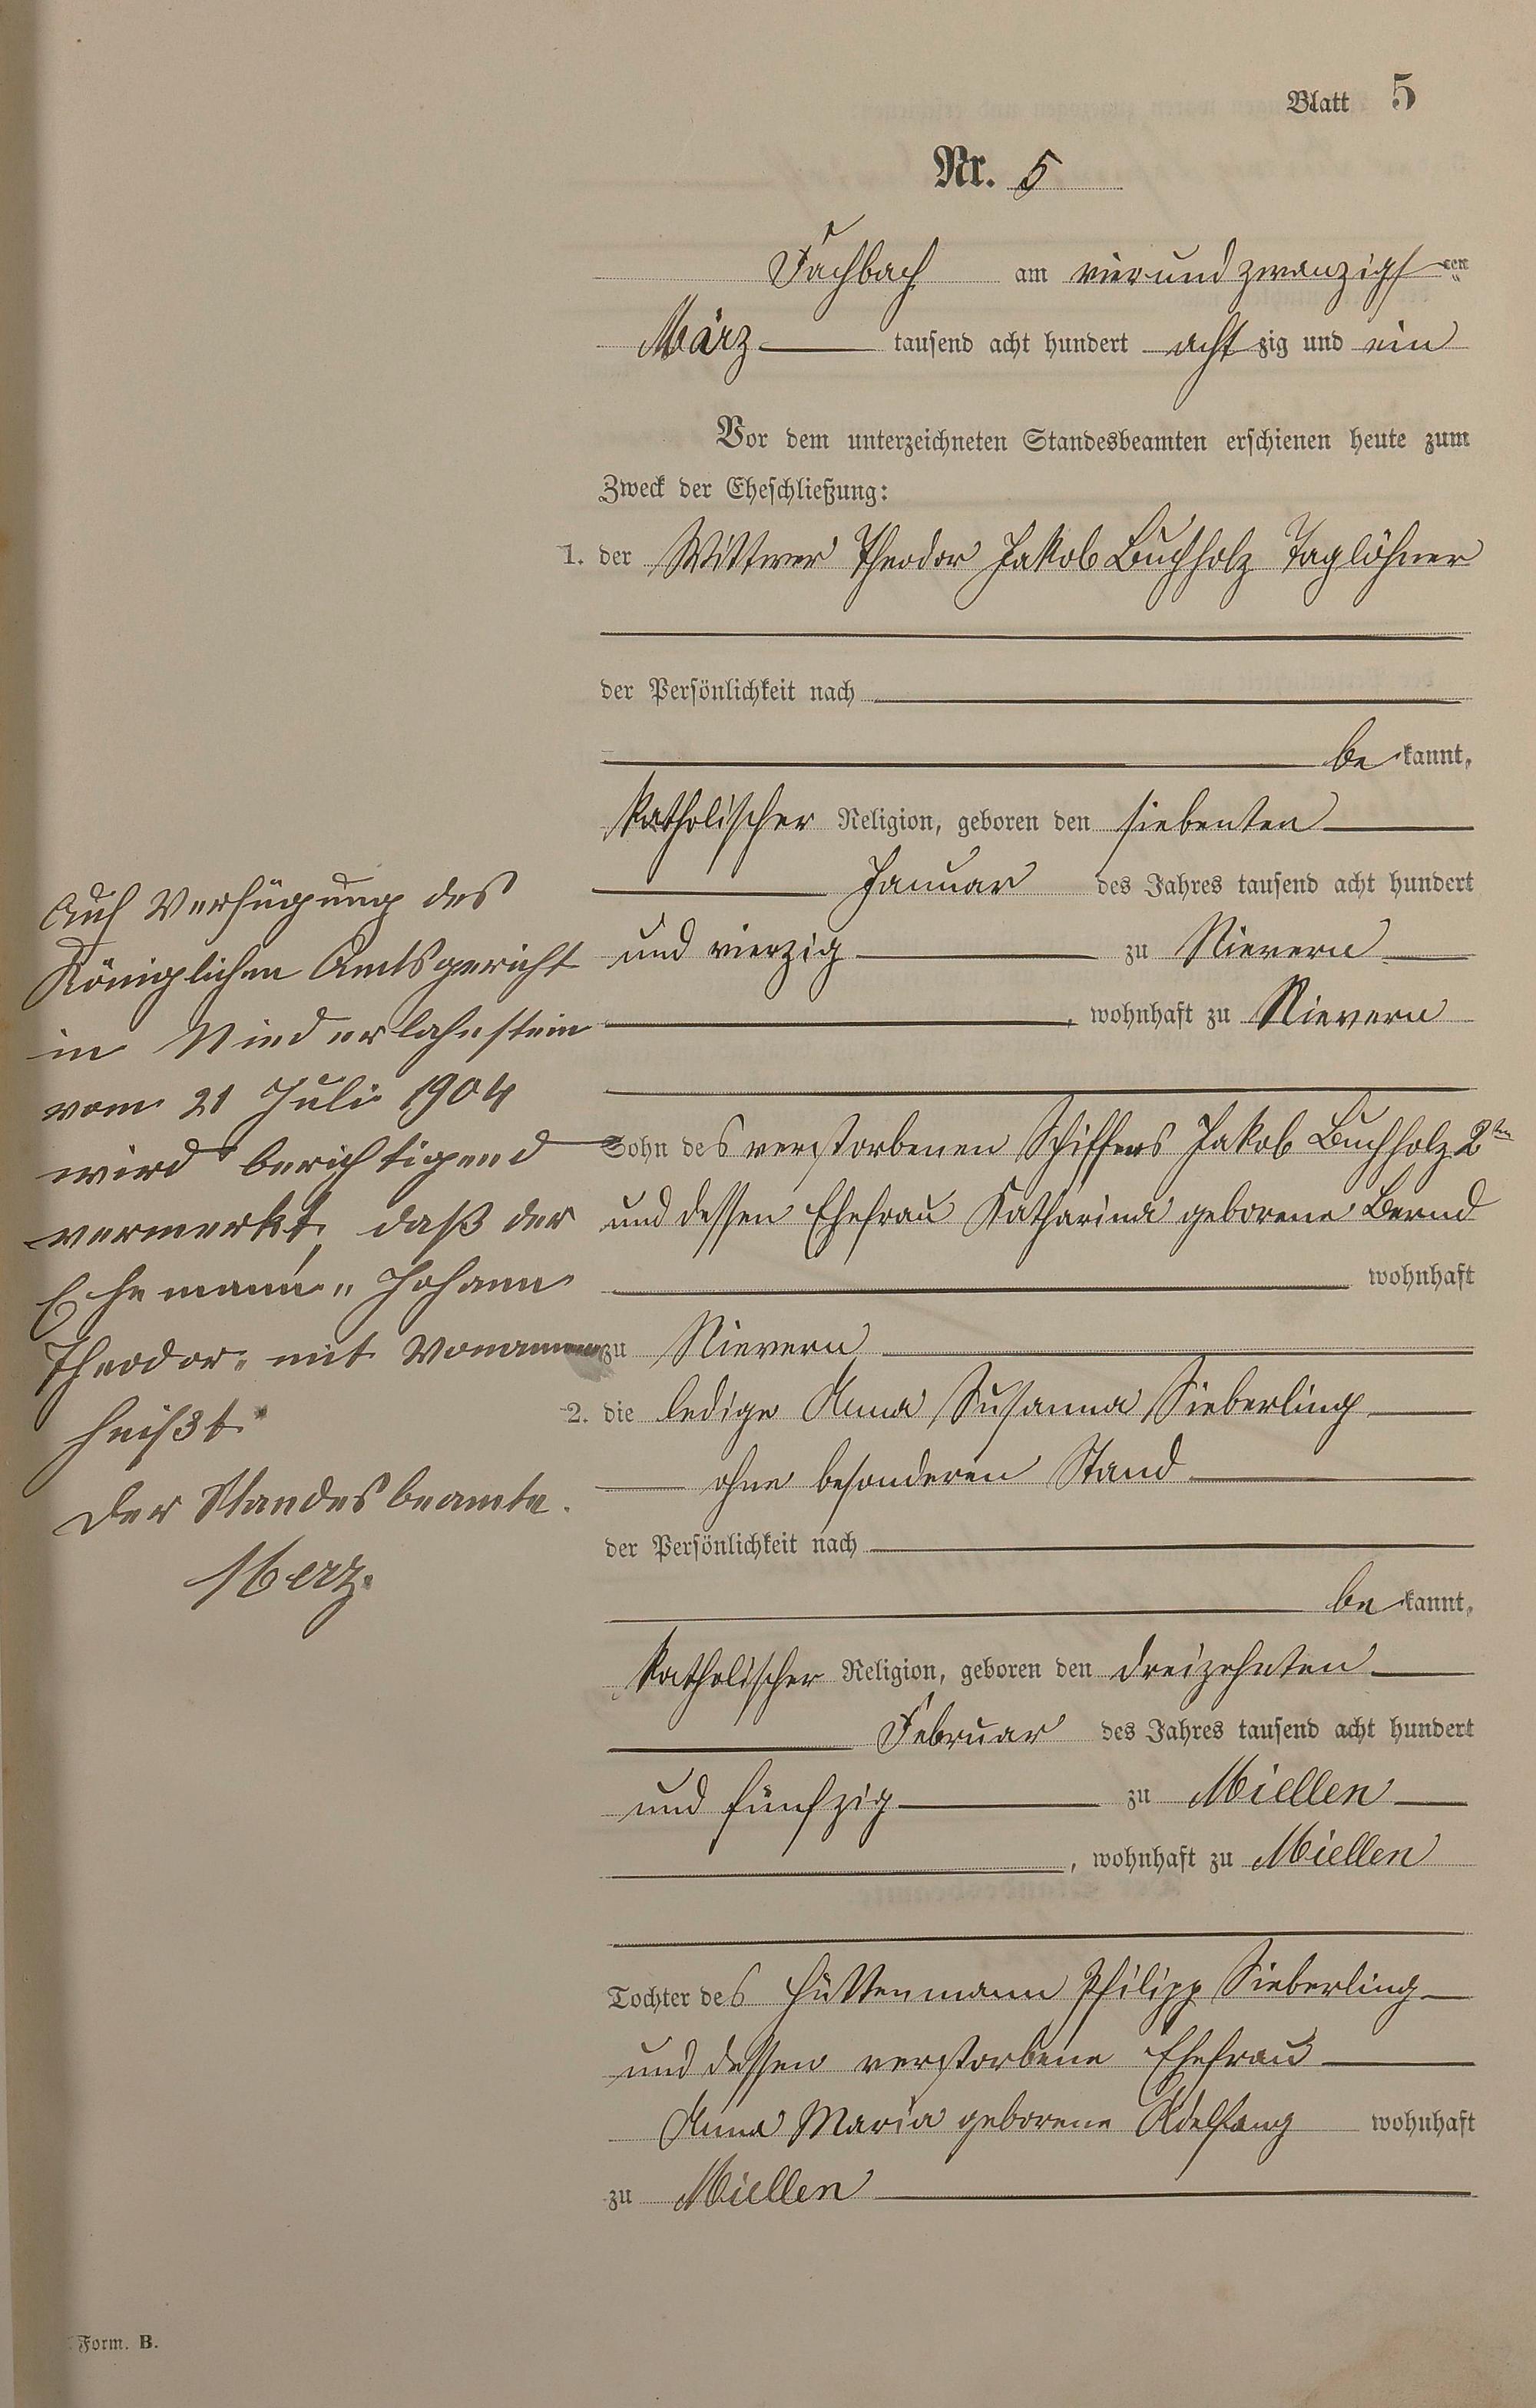 Blatt 5
Nr. 5
Fachbach am vierundzwanzigsten
März tausend acht hundert achtzig und ein
Vor dem unterzeichneten Standesbeamten erschienen heute zum
Zweck der Eheschließung:
1. der Wittwer Theodor Jakob Buchholz Taglöhner
der Persönlichkeit nach
bekannt,
katholischer Religion, geboren den siebenten
Januar des Jahres tausend acht hundert
und vierzig zu Nievern
, wohnhaft zu Nievern
Sohn des verstorbenen Schiffers Jakob Buchholz 2ten
und dessen Ehefrau Katharina geborene Bernd
wohnhaft
zu Nievern
2. die ledige Anna Susanna Sieberling
ohne besonderen Stand
der Persönlichkeit nach
bekannt,
katholischer Religion, geboren den dreizehnten
Februar des Jahres tausend acht hundert
und fünfzig zu Miellen
, wohnhaft zu Miellen
Tochter des Hüttenmann Philipp Sieberling
und dessen verstorbene Ehefrau
Anna Maria geborene wohnhaft
zu Miellen
Auf Verfügung des
Königlichen Amtsgericht
in Niederlahnstein
vom 21 Juli 1904
wird berichtigend
vermerkt, daß der
Ehemann „Johann
Theodor" mit Vornamen
heißt.
Der Standesbeamte.
Merz.
Form. B.